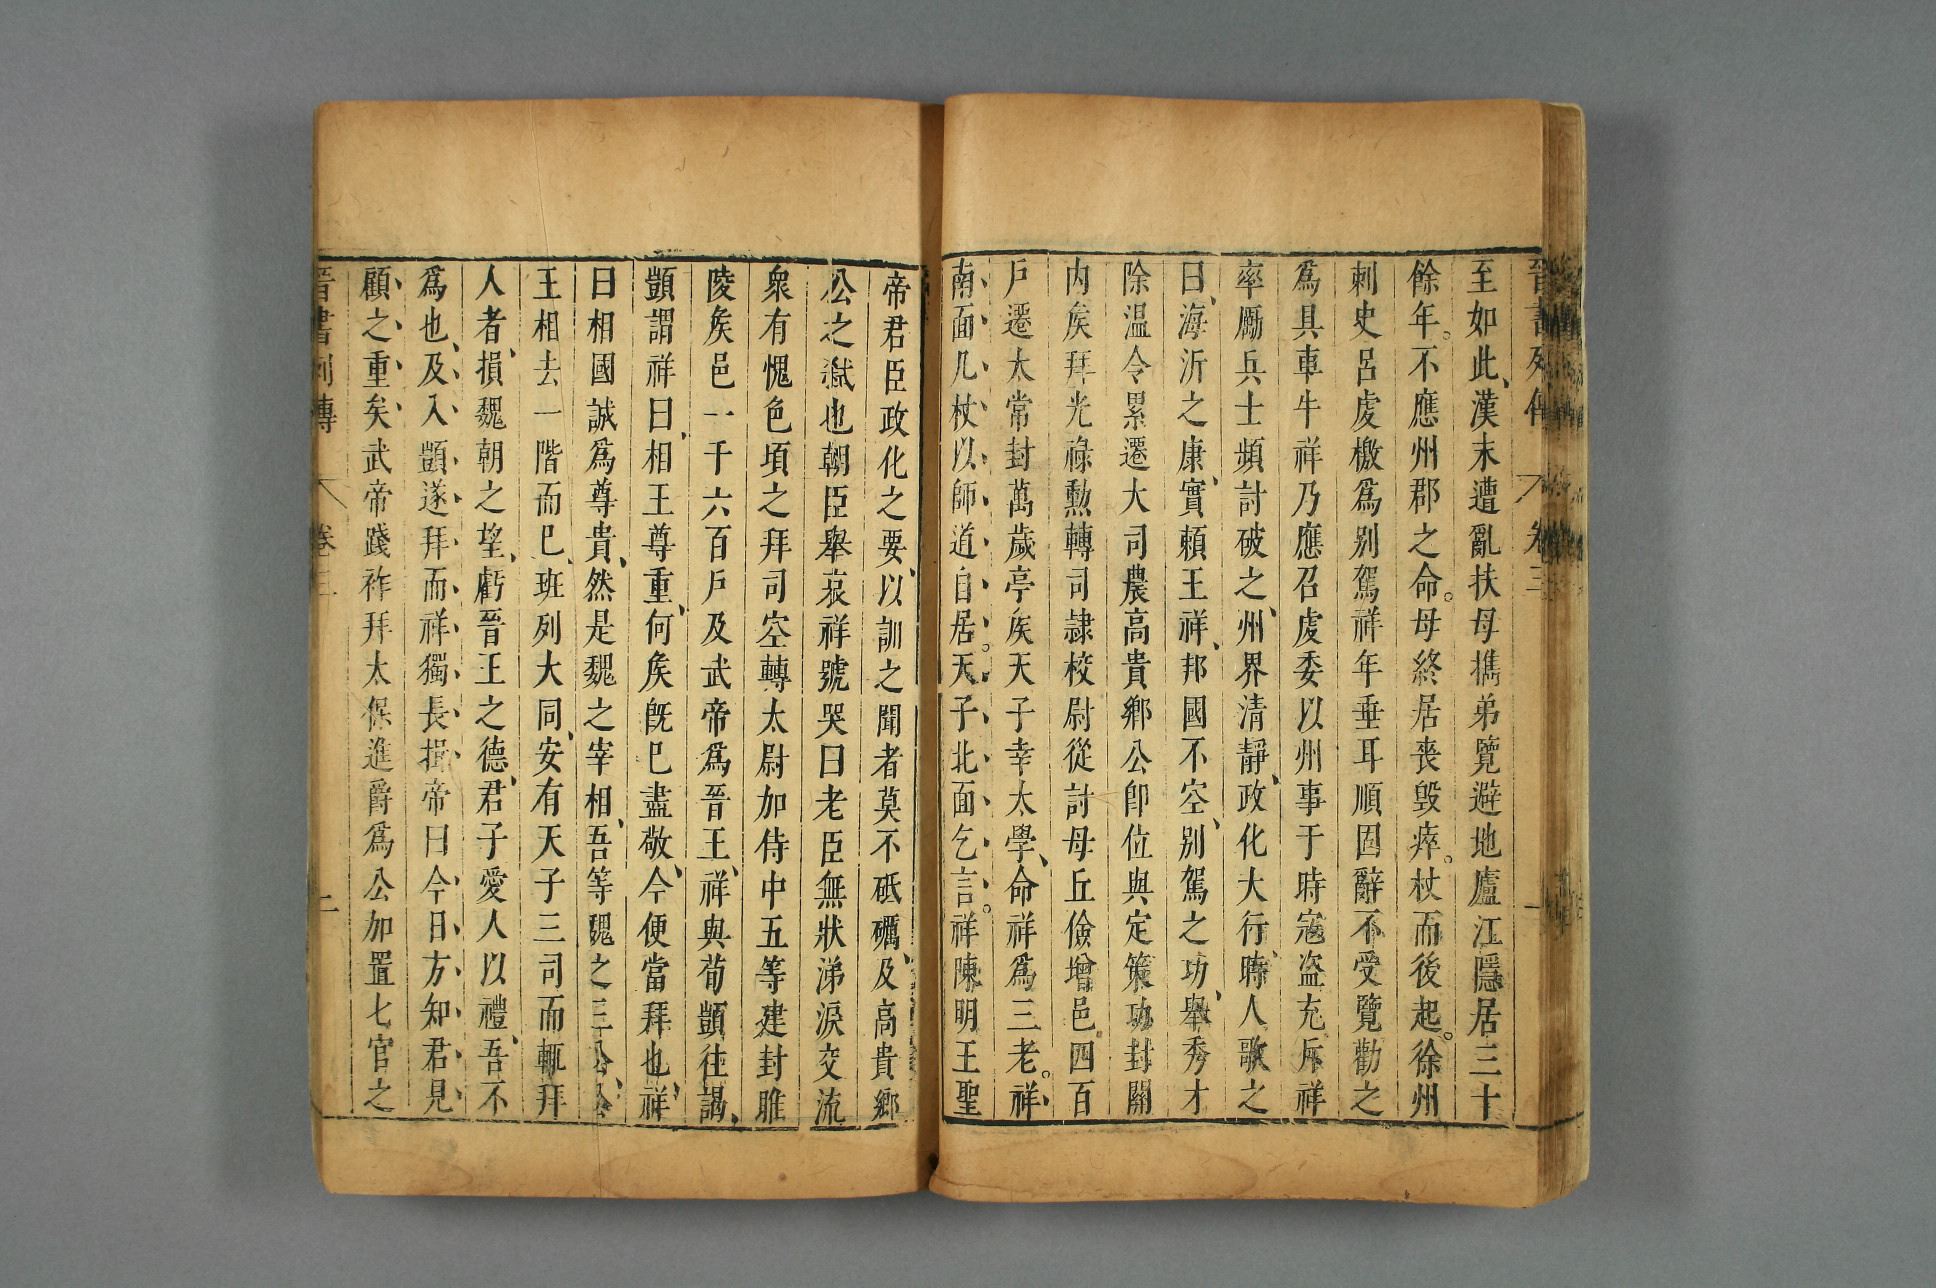 晉書列傳 卷三 一
至如此漢末遭亂扶母携弟覽避地廬江隱居三十
餘年。不應州郡之命。母終居喪毁瘁。杖而後起。徐州
刺史呂虔檄爲别駕祥年垂耳順固辭不受覽勸之
爲具車牛祥乃應召虔委以州事于時寇盗充斥祥
率厲兵士頻討破之、州界清靜、政化大行、時人歌之
曰、海沂之康、實頼王祥、邦國不空、别駕之功、舉秀才
除温令累遷大司農高貴鄉公即位與定策功封關
内矦拜光祿勲轉司隷校尉從討母丘儉增邑四百
戸遷太常封萬歲亭矦天子幸太學、命祥爲三老。祥、
南面几杖以師道自居。天子北面乞言。祥陳明王聖
帝君臣政化之要、以訓之聞者莫不砥礪、及高貴鄉
公之弑也朝臣舉哀祥號哭曰老臣無狀涕淚交流
衆有愧色頃之拜司空轉太尉加侍中五等建封睢
陵矦邑一千六百戸及武帝爲晉王、祥與荀顗往謁、
顗謂祥曰、相王尊重、何矦旣已盡敬、今便當拜也、祥、
曰相國誠爲尊貴、然是魏之宰相、吾等魏之三公、公
王相去一階而已、班列大同、安有天子三司而輒拜
人者、損魏朝之望、虧晉王之德、君子愛人以禮、吾不
爲也、及入顗遂拜而祥獨長揖帝曰今日方知君見
顧之重矣武帝踐祚拜太保進爵爲公加置七官之
晉書列傳 卷三 二